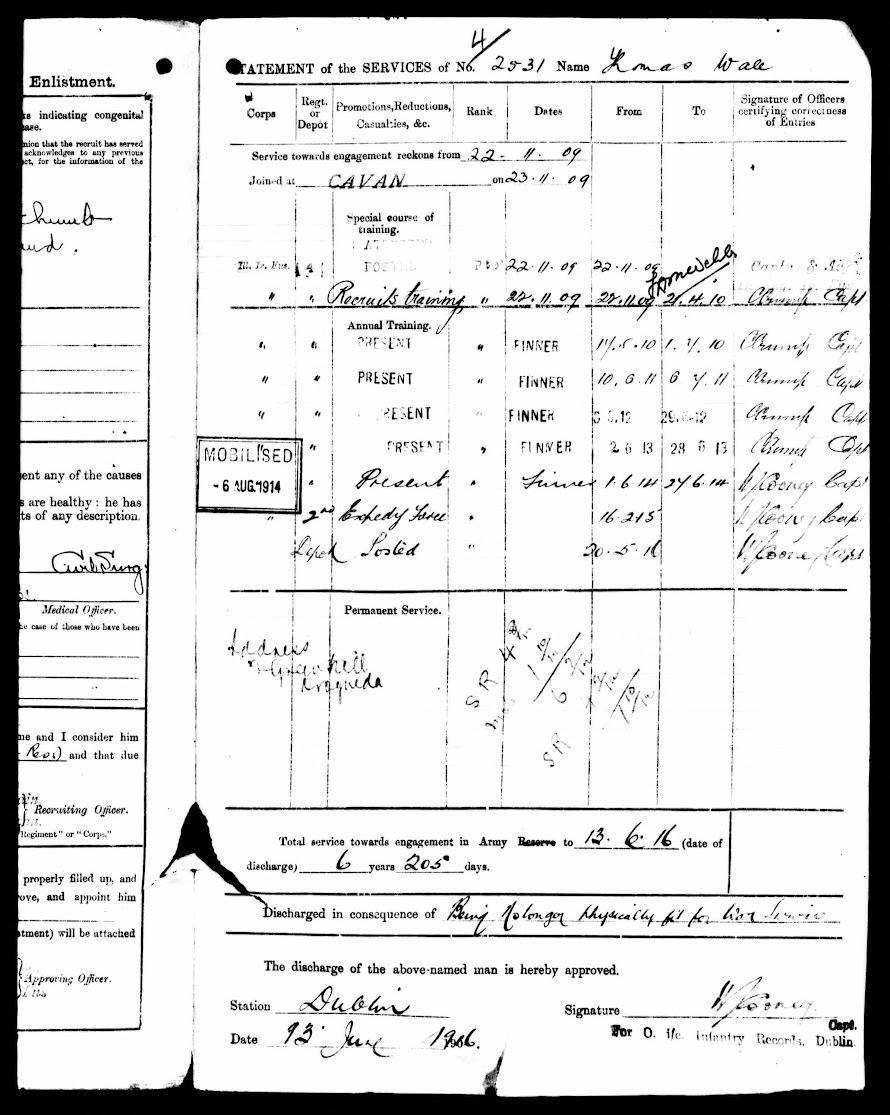 Enlistment.
ks indicating congenital
ase.
nion that the recruit has served
acknowledges to any previous
ct, for the information of the
ent any of the causes
s are healthy: he has
ts of any description.
Civil Surg
Medical Officer.
he case of those who have been
me and I consider him
Res.) and that due
Recruiting Officer.
Regiment" or "Corps."
properly filled up, and
rove, and appoint him
stment) will be attached
Approving Officer.
4/
STATEMENT of the SERVICES of No. 2531 Name Thomas Wall
Corps Regt. or Depôt Promotions, Reductions, Casualties, &c. Rank Dates From To Signature of Officers certifying correctness of Entries
Service towards engagement reckons from 22-11-09
Joined at CAVAN on 23.11.09
Special course of
training.
ATTESTED
Rl. Ir. Fus. 4 POSTED 22-11-09 22-11-09
" " Recruits training " 22.11.09 22.11.09 21.4.10 Capt
Annual Training.
" " PRESENT " FINNER 10 1.7.10 Capt
" " PRESENT " FINNER 10.6.11 6 7.11 Capt
" RESENT " FINNER 12 29.6-12 Capt
MOBILISED
" PRESENT " FINNER 2 6 13 28 6 13 Capt
- 6 AUG. 1914
" Present " Finner 1.6.14 27.6.14 W J Cooney Capt
" 2nd Expedy Force " 16.2.15 W J Cooney Capt
Depot Posted " 20.5.16 W J Cooney Capt
Permanent Service.
Address
Greenhill
Drogheda
S R
S R 6
Total service towards engagement in Army Reserve to 13.6.16 (date of
discharge) 6 years 205 days.
Discharged in consequence of Being No longer physically fit for War Service
The discharge of the above-named man is hereby approved.
Station Dublin Signature W J Cooney
Capt.
Date 13 June 1916. For O. i/c. Infantry Records, Dublin.